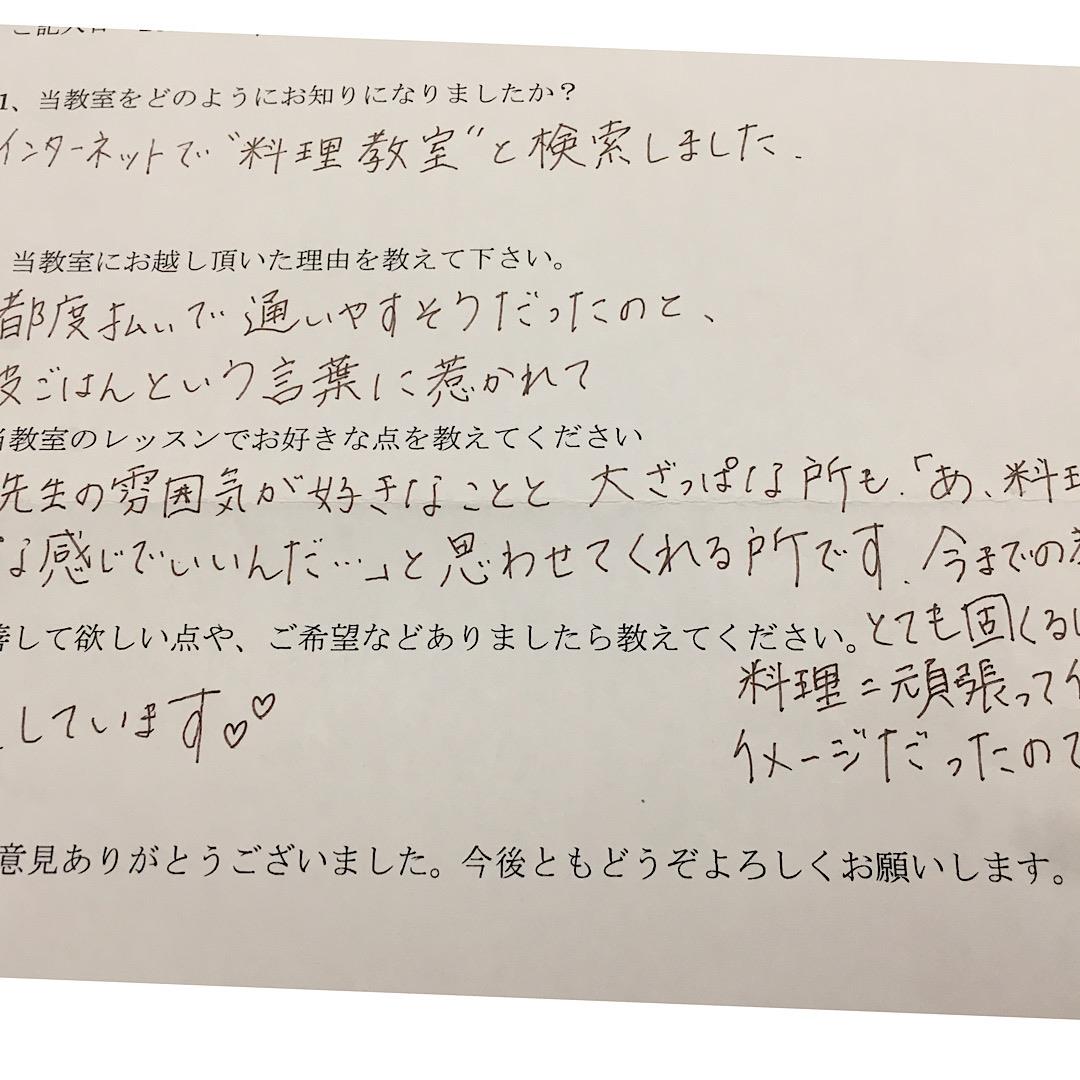 1、当教室をどのようにお知りになりましたか？
インターネットで"料理教室"と検索しました.
当教室にお越し頂いた理由を教えて下さい。
都度払いで通いやすそうだったのと、
ごはんという言葉に惹かれて
当教室のレッスンでお好きな点を教えてください
先生の雰囲気が好きなことと 大ざっぱな所も.「あ、料理
な感じでいいんだ…」と思わせてくれる所です. 今までの
善して欲しい点や、ご希望などありましたら教えてください。
とても固くるし
料理＝頑張って
イメージだったので
しています♡♡
意見ありがとうございました。今後ともどうぞよろしくお願いします。